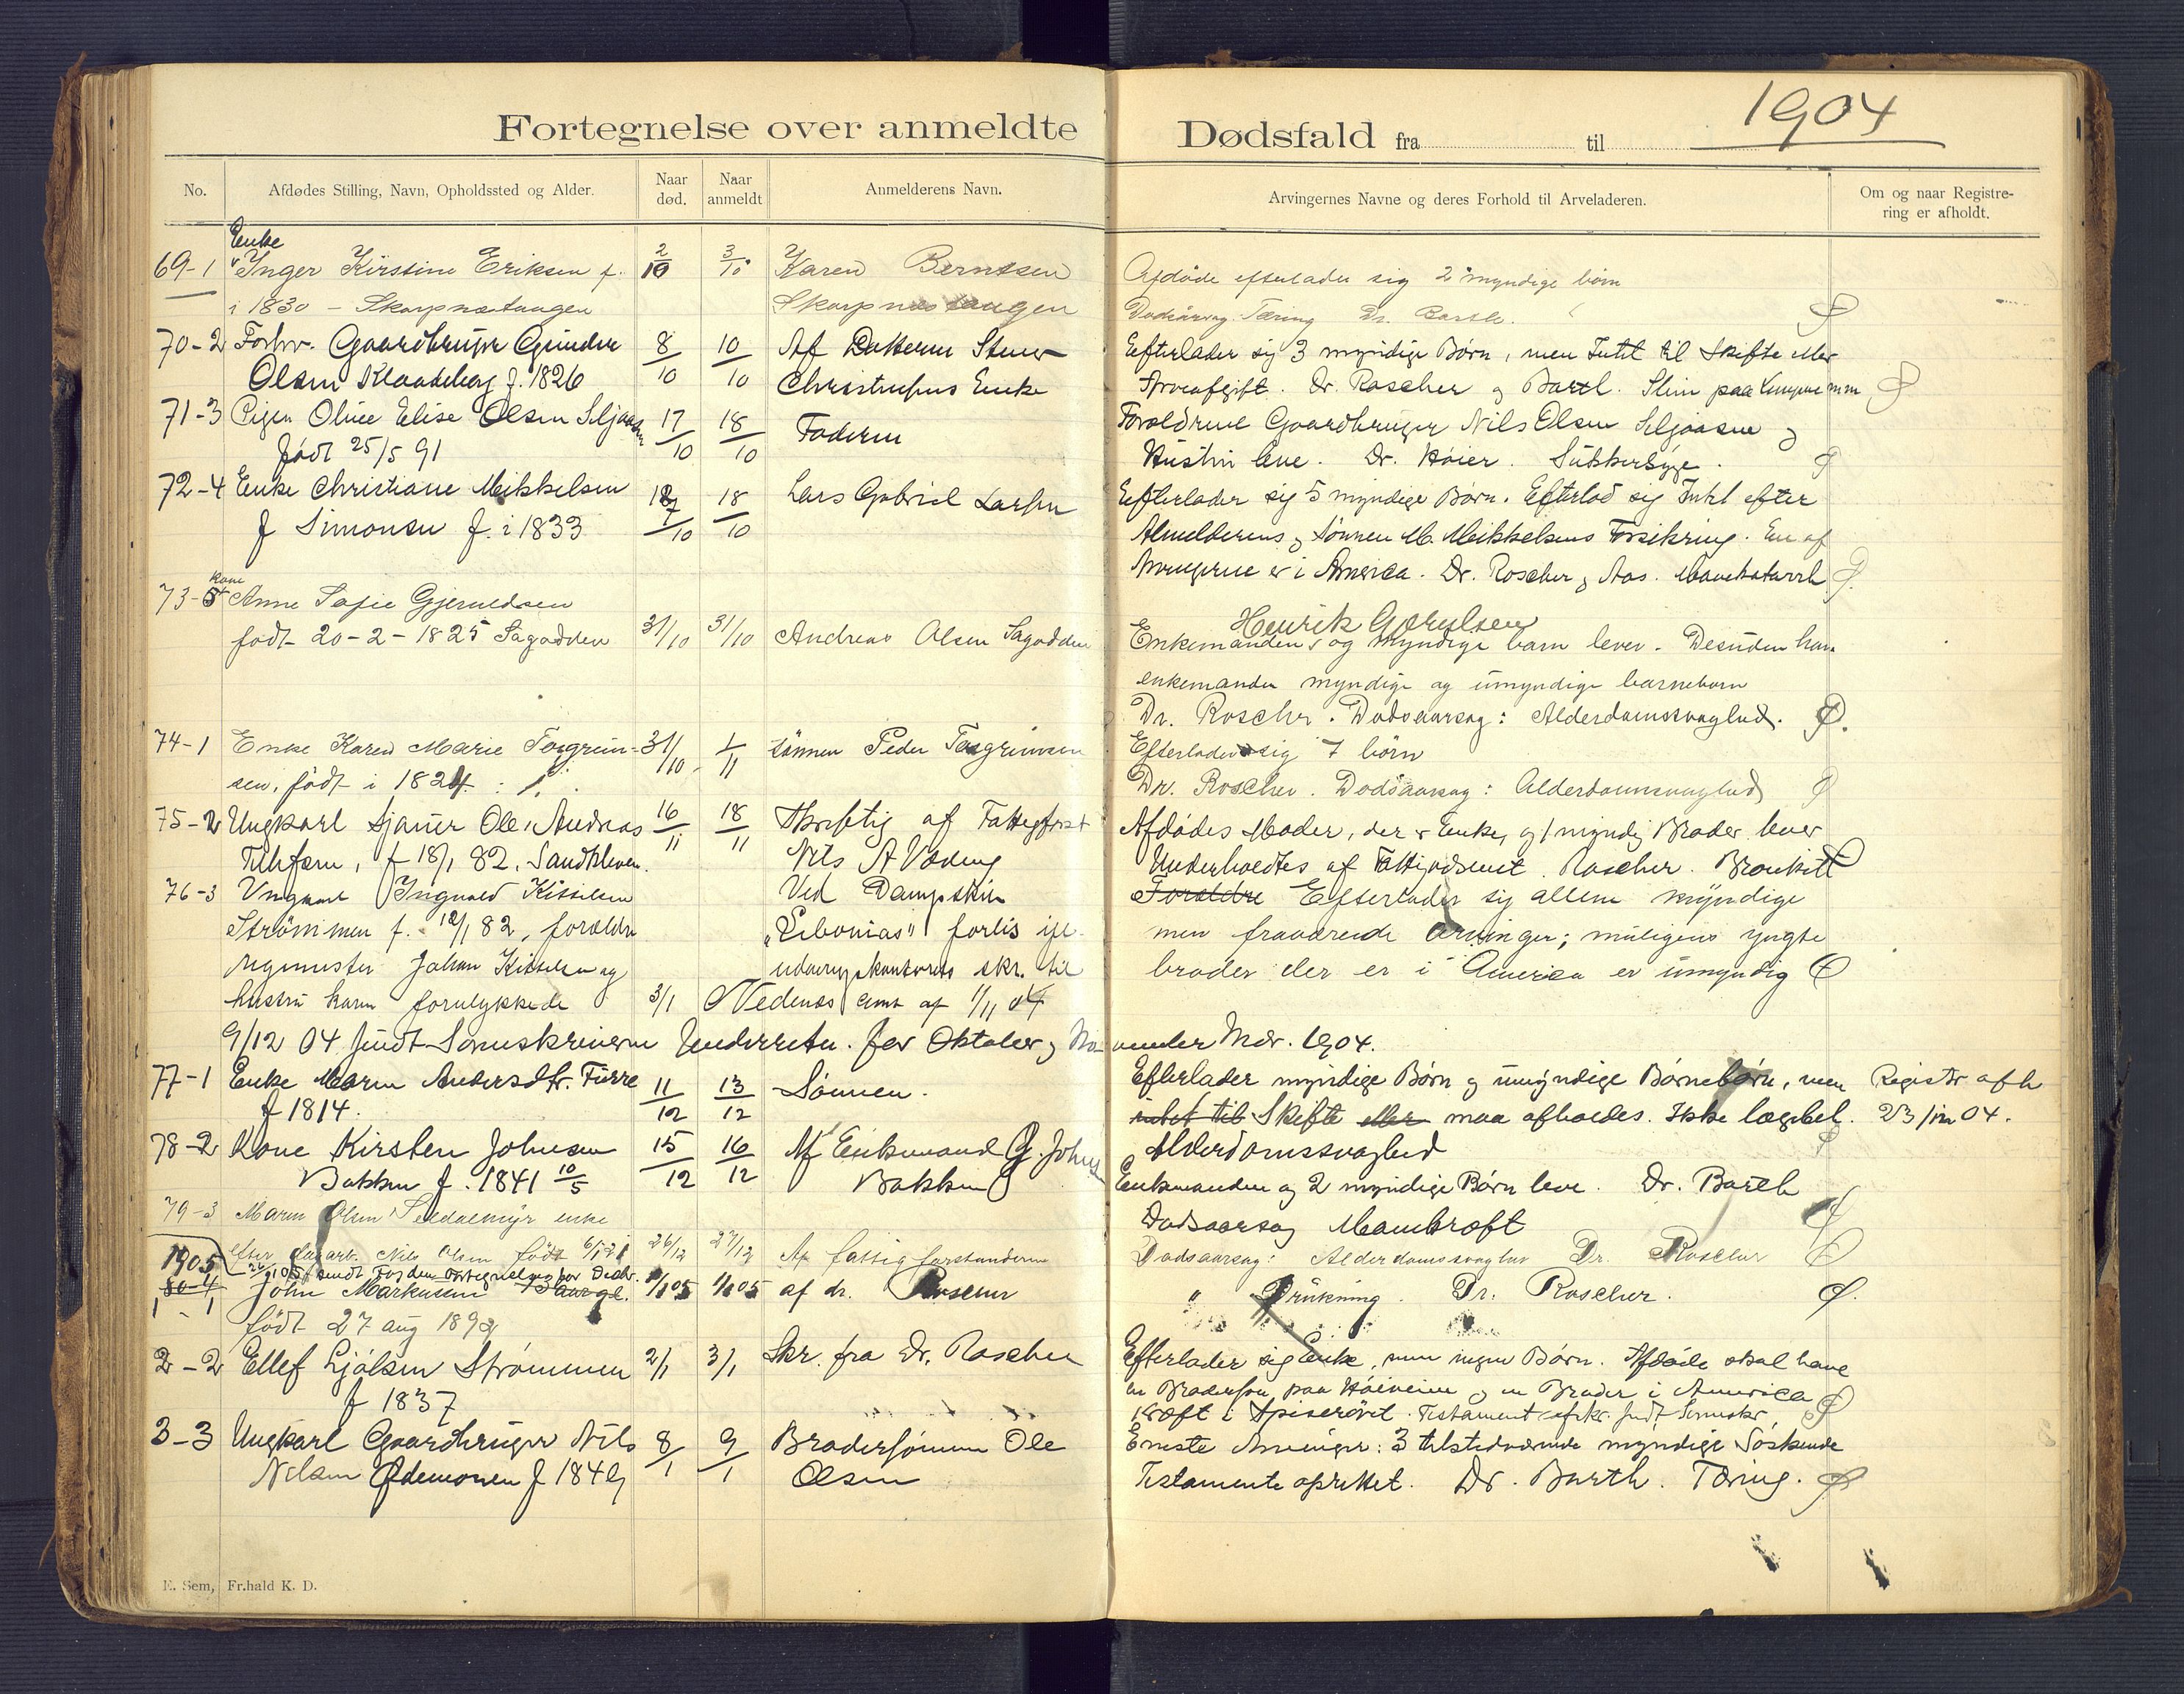 1904
Fortegnelse over anmeldte Dødsfald fra til
No. Afdødes Stilling, Navn, Opholdssted og Alder. Naar død. Naar anmeldt Anmelderens Navn. Arvingernes Navne og deres Forhold til Arveladeren. Om og naar Registrering er afholdt.
Enke
69-1 Inger Kirstine Eriksen f. 2/10 3/10 Karen Berntsen Afdøde efterlader sig 2 myndige børn
i 1830 - Skarpnestangen Skarpnestangen Dødsårsag Tæring Dr. Barth.
70-2 Forhv. Gaardbruger Gunder 8/10 10/10 Af Datteren Efterlader sig 3 myndige Børn, men Intet til Skifte eller
Olsen Klaadeborg f. 1826 Christensens Enke Arveafgift. Dr. Roscher og Barth. Slim paa Lungene mm
71-3 Pigen Oline Elise Olsen Seljaasen 17/10 18/10 Faderen Forældrene Gaardbruger Nils Olsen Seljaasen og
født 25/5 91 Hustru leve. Dr. Høier. Sukkersyge.
72-4 Enke Christiane Mikkelsen 17/10 18/10 Lars Gabriel Larsen Efterlader sig 5 myndige Børn. Efterlod sig Intet efter
f Simonsen f. i 1833 Anmelderens og Sønnen M. Mikkelsens Forsikring. En af
Arvingerne er i America. Dr. Roscher og Aas. Mavekatarrh
Kone
73-5 Anne Sofie Gjerueldsen
født 20-2-1825 Sagodden 31/10 31/10 Andreas Olsen Sagodden Enkemanden og myndige barn lever. Desuden har
enkemanden myndige og umyndige barnebørn
Dr. Roscher. Dødsaarsag: Alderdomssvaghed.
74-1 Enke Karen Marie Torgrim- 31/10 1/11 sønnen Peder Torgrimsen Efterlader sig 7 børn
sen, født i 1824. Dr. Roscher. Dødsaarsag: Alderdomssvaghed
75-2 Ungkarl Sjømr Ole Andreas 16/11 18/11 Skriftlig af Fattigforst Afdødes Moder, der er Enke, og 1 myndig Broder lever
f 18/1 82. Sandkleven. Nils A Væding Underholdtes af Fattigvæsenet. Roscher. Bronkitt
76-3 Ungkarl Ingvald Kittilsen Ved Dampskibet Forældre Efterlader sig allene myndige
Strømmen f. 12/1 82, forældre "Libonias" forlis ifl. men fraværende arvinger; muligens yngste
Johan Kittilsen og skr. til broder der er i America er umyndig
hustru Karen forulykkede 3/1 Nedenæs amt af 1/11 04
9/12 04 sendt Sorenskriveren Underretn. for Oktober og November Mdr. 1904.
77-1 Enke Maren Andersdtr. Furre 11/12 13/12 Sønnen. Efterlader myndige Børn og umyndige Børnebørn, men Registr afh
f 1814. intet til Skifte eller maa afholdes. Ikke lægebeh. 23/12 04.
78-2 Kone Kirsten Johnsen 15/12 16/12 Af Enkemand G. Johnsen Alderdomssvaghed
Bakken f. 1841 10/5 Bakken Enkemanden og 2 myndige Børn leve. Dr. Barth
79-3 Maren Olsen Seldalsmyr enke Dødsaarsag Mavekræft
efter Nils Olsen født 6/1 21 26/12 27/12 Af fattigforstanderen Dødsaarsag: Alderdomssvaghed Dr. Roscher
1905 sendt Fogden Fortegnelse for Decbr.
80-4 John Markussen 1/1 05 1/1 05 af dr. Roscher " Drukning. Dr. Roscher.
1-1 født 27 aug 1892
2-2 Ellef Ljosen Strømmen 2/1 3/1 Skr. fra Dr. Roscher Efterlader sig Enke, men ingen Børn. Afdøde skal have
f 1837 en Brodersøn paa og en Broder i America
Kræft i Spiserøret. Testament
3-3 Ungkarl Gaardbruger Nils 8/1 9/1 Brodersønnen Ole Eneste Arvinger: 3 tilstedværende myndige Søskende
Nilsen Ødemonen f 1849 Olsen Testamente oprettet. Dr. Barth. Tæring.
E. Sem, Fr.hald K. D.